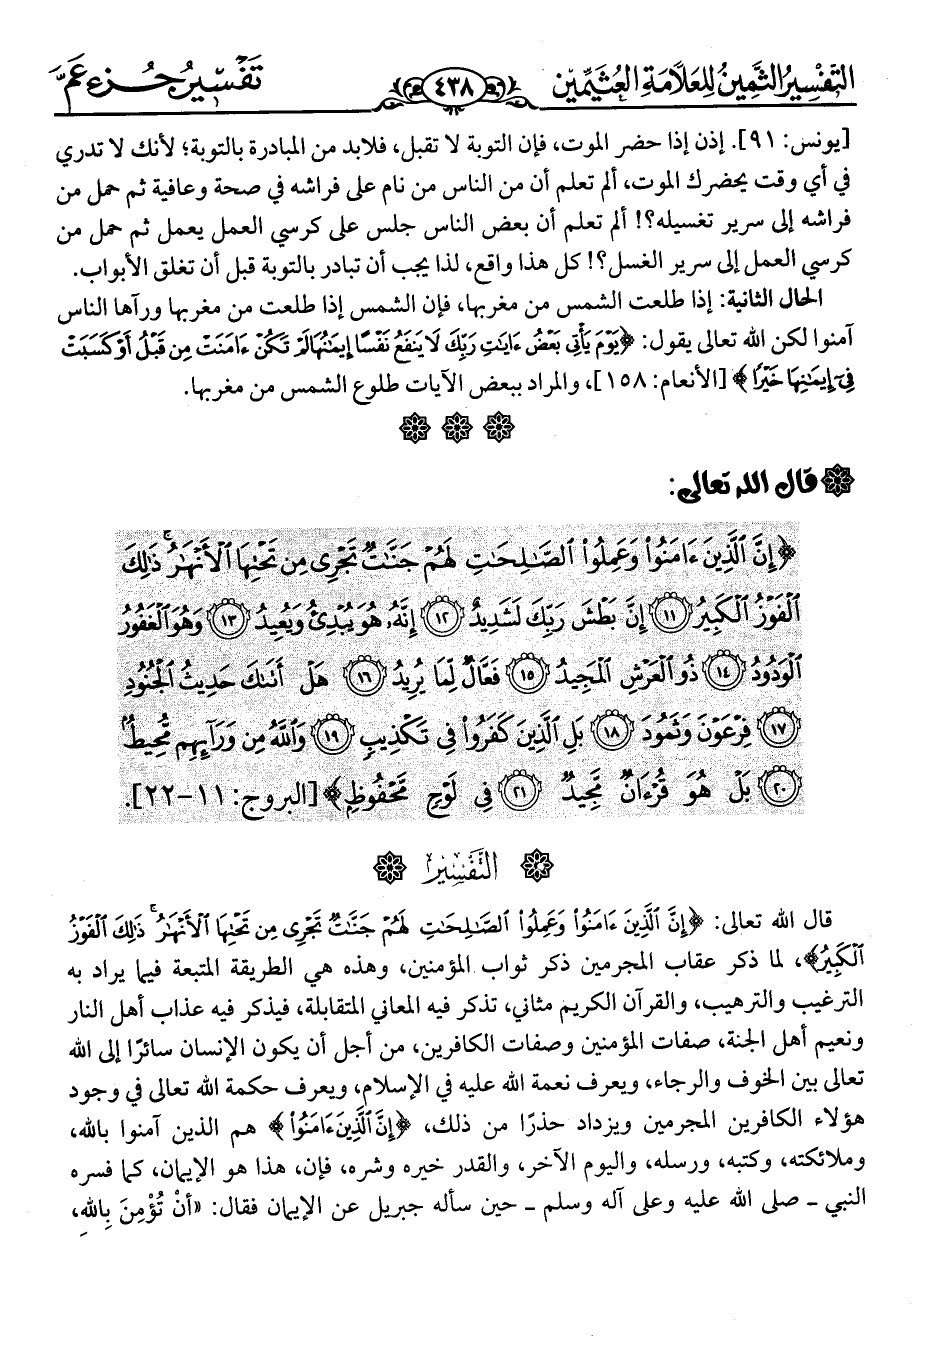 التفسير الثمين للعلامة العثيمين ٤٣٨ تفسير جزء عم
[يونس: ٩١]. إذن إذا حضر الموت، فإن التوبة لا تقبل، فلابد من المبادرة بالتوبة؛ لأنك لا تدري
في أي وقت يحضرك الموت، ألم تعلم أن من الناس من نام على فراشه في صحة وعافية ثم حمل من
فراشه إلى سرير تغسيله؟! ألم تعلم أن بعض الناس جلس على كرسي العمل يعمل ثم حمل من
كرسي العمل إلى سرير الغسل؟! كل هذا واقع، لذا يجب أن تبادر بالتوبة قبل أن تغلق الأبواب.
الحال الثانية: إذا طلعت الشمس من مغربها، فإن الشمس إذا طلعت من مغربها ورآها الناس
آمنوا لكن الله تعالى يقول: ﴿يَوْمَ يَأْتِي بَعْضُ ءَايَٰتِ رَبِّكَ لَا يَنفَعُ نَفْسًا إِيمَٰنُهَا لَمْ تَكُنْ ءَامَنَتْ مِن قَبْلُ أَوْ كَسَبَتْ
فِىٓ إِيمَٰنِهَا خَيْرًا﴾ [الأنعام: ١٥٨]، والمراد ببعض الآيات طلوع الشمس من مغربها.
قال الله تعالى:
﴿إِنَّ ٱلَّذِينَ ءَامَنُوا۟ وَعَمِلُوا۟ ٱلصَّٰلِحَٰتِ لَهُمْ جَنَّٰتٌ تَجْرِى مِن تَحْتِهَا ٱلْأَنْهَٰرُ ۚ ذَٰلِكَ
ٱلْفَوْزُ ٱلْكَبِيرُ ١١ إِنَّ بَطْشَ رَبِّكَ لَشَدِيدٌ ١٢ إِنَّهُۥ هُوَ يُبْدِئُ وَيُعِيدُ ١٣ وَهُوَ ٱلْغَفُورُ
ٱلْوَدُودُ ١٤ ذُو ٱلْعَرْشِ ٱلْمَجِيدُ ١٥ فَعَّالٌ لِّمَا يُرِيدُ ١٦ هَلْ أَتَىٰكَ حَدِيثُ ٱلْجُنُودِ
١٧ فِرْعَوْنَ وَثَمُودَ ١٨ بَلِ ٱلَّذِينَ كَفَرُوا۟ فِى تَكْذِيبٍ ١٩ وَٱللَّهُ مِن وَرَآئِهِم مُّحِيطٌۢ
٢٠ بَلْ هُوَ قُرْءَانٌ مَّجِيدٌ ٢١ فِى لَوْحٍ مَّحْفُوظٍۭ﴾ [البروج: ١١-٢٢].
التفسير
قال الله تعالى: ﴿إِنَّ ٱلَّذِينَ ءَامَنُوا۟ وَعَمِلُوا۟ ٱلصَّٰلِحَٰتِ لَهُمْ جَنَّٰتٌ تَجْرِى مِن تَحْتِهَا ٱلْأَنْهَٰرُ ۚ ذَٰلِكَ ٱلْفَوْزُ
ٱلْكَبِيرُ﴾، لما ذكر عقاب المجرمين ذكر ثواب المؤمنين، وهذه هي الطريقة المتبعة فيما يراد به
الترغيب والترهيب، والقرآن الكريم مثاني، تذكر فيه المعاني المتقابلة، فيذكر فيه عذاب أهل النار
ونعيم أهل الجنة، صفات المؤمنين وصفات الكافرين، من أجل أن يكون الإنسان سائرًا إلى الله
تعالى بين الخوف والرجاء، ويعرف نعمة الله عليه في الإسلام، ويعرف حكمة الله تعالى في وجود
هؤلاء الكافرين المجرمين ويزداد حذرًا من ذلك، ﴿إِنَّ ٱلَّذِينَ ءَامَنُوا۟﴾ هم الذين آمنوا بالله،
وملائكته، وكتبه، ورسله، واليوم الآخر، والقدر خيره وشره، فإن، هذا هو الإيمان، كما فسره
النبي ـ صلى الله عليه وعلى آله وسلم ـ حين سأله جبريل عن الإيمان فقال: «أنْ تُؤْمِنَ بِاللهِ،